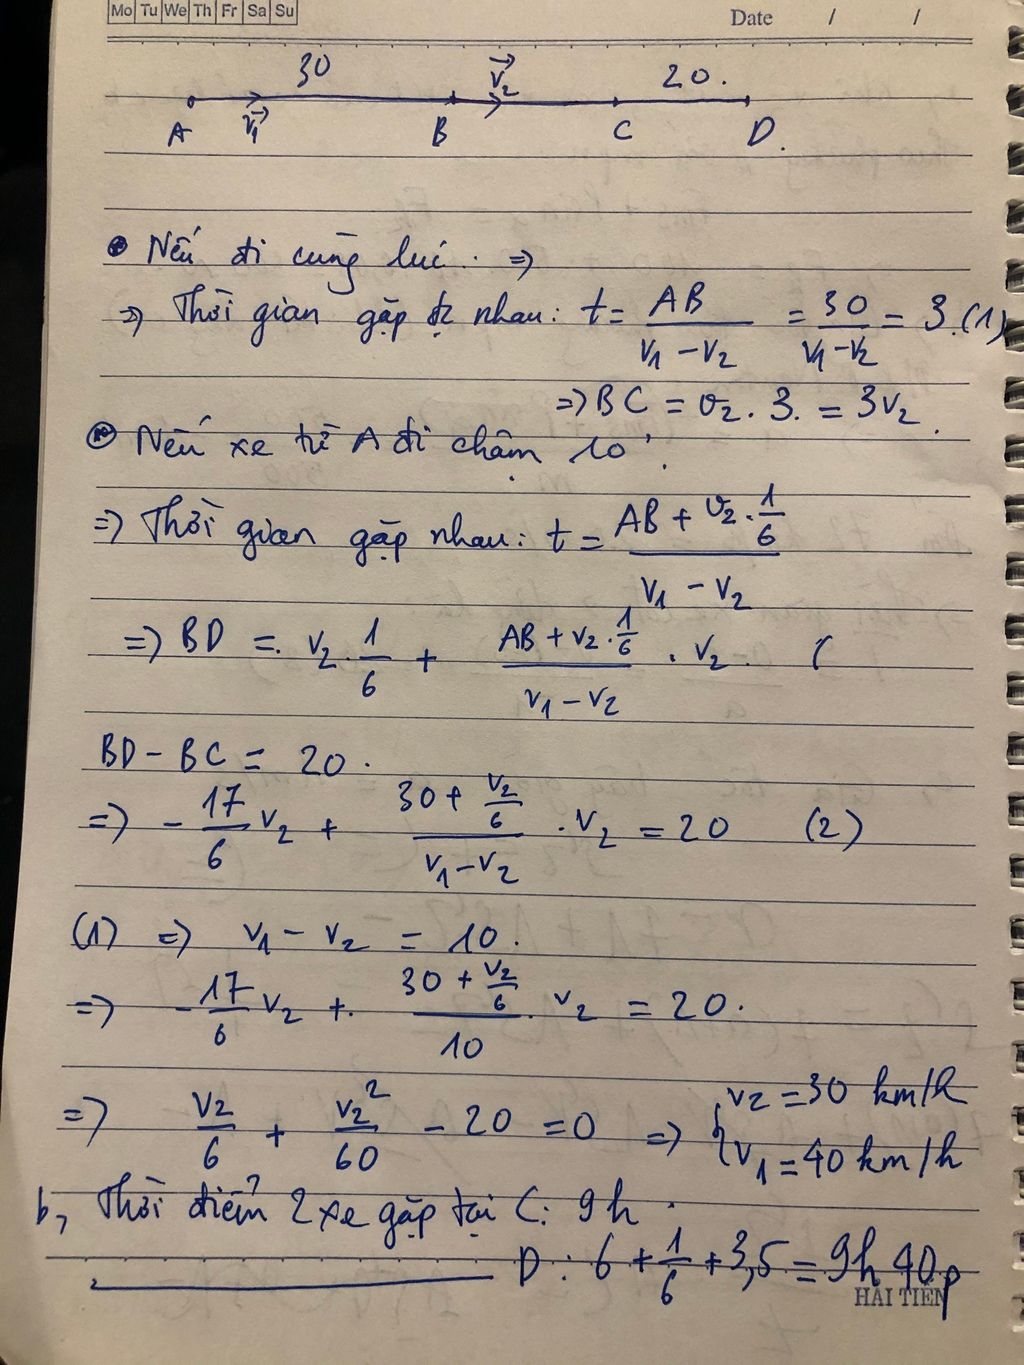 Mo Tu We Th Fr Sa Su
Date / /
30 v₂→ 20.
A v₁→ B C D.
• Nếu đi cùng lúc. =>
=> Thời gian gặp nhau: t = AB/(v₁ - v₂) = 30/(v₁ - v₂) = 3. (1)
=> BC = v₂ . 3. = 3v₂.
• Nếu xe từ A đi chậm 10'.
=> Thời gian gặp nhau: t = (AB + v₂ . 1/6)/(v₁ - v₂)
=> BD =. v₂ . 1/6 + (AB + v₂ . 1/6)/(v₁ - v₂) . v₂. (
BD - BC = 20.
=> - 17/6 v₂ + (30 + v₂/6)/(v₁ - v₂) . v₂ = 20 (2)
(1) => v₁ - v₂ = 10.
=> - 17/6 v₂ +. (30 + v₂/6)/10 . v₂ = 20.
=> v₂/6 + v₂²/60 - 20 = 0 => { v₂ = 30 km/h
v₁ = 40 km/h
b, Thời điểm 2 xe gặp tại C: 9h.
D: 6 + 1/6 + 3,5 = 9h 40p
HẢI TIẾN